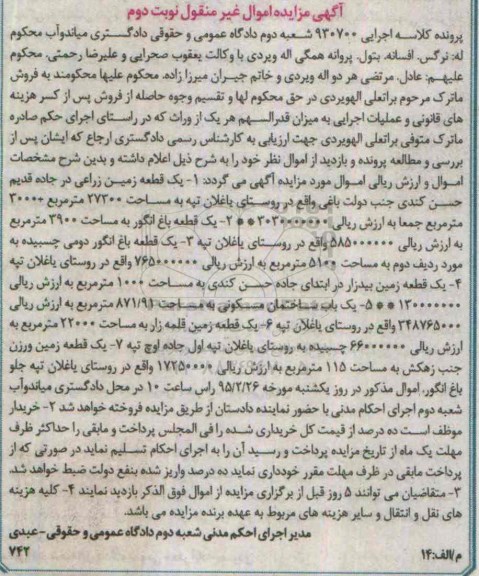 آگهی مزایده اموال غیر منقول نوبت دوم
پرونده کلاسه اجرایی ۹۳۰۷۰۰ شعبه دوم دادگاه عمومی و حقوقی دادگستری میاندوآب محکوم
له: نرگس. افسانه. بتول. پروانه همگی اله ویردی با وکالت یعقوب صحرایی و علیرضا رحمتی. محکوم
علیهم: عادل. مرتضی هر دو اله ویردی و خانم جیران میرزا زاده. محکوم علیها محکومند به فروش
ماترک مرحوم براتعلی الهویردی در حق محکوم لها و تقسیم وجوه حاصله از فروش پس از کسر هزینه
های قانونی و عملیات اجرایی به میزان قدرالسهم هر یک از وراث که در راستای اجرای حکم صادره
ماترک متوفی براتعلی الهویردی جهت ارزیابی به کارشناس رسمی دادگستری ارجاع که ایشان پس از
بررسی و مطالعه پرونده و بازدید از اموال نظر خود را به شرح ذیل اعلام داشته و بدین شرح مشخصات
اموال و ارزش ریالی اموال مورد مزایده آگهی می گردد: ۱- یک قطعه زمین زراعی در جاده قدیم
حسن کندی جنب دولت باغی واقع در روستای یاغلان تپه به مساحت ۲۷۳۰۰ مترمربع +۳۰۰۰
مترمربع جمعا به ارزش ریالی ۳۰۳۰۰۰۰۰۰۰ ۲- یک قطعه باغ انگور به مساحت ۳۹۰۰ مترمربع
به ارزش ریالی ۵۸۵۰۰۰۰۰۰ واقع در روستای یاغلان تپه ۳- یک قطعه باغ انگور دومی چسبیده به
مورد ردیف دوم به مساحت ۵۱۰۰ مترمربع به ارزش ریالی ۷۶۵۰۰۰۰۰۰ واقع در روستای یاغلان تپه
۴- یک قطعه زمین بیدزار در ابتدای جاده حسن کندی به مساحت ۱۰۰۰ مترمربع به ارزش ریالی
۱۳۰۰۰۰۰۰۰ ۵- یک باب ساختمان مسکونی به مساحت ۸۷۱/۹۱ مترمربع به ارزش ریالی
۳۴۸۷۶۵۰۰۰ واقع در روستای یاغلان تپه ۶- یک قطعه زمین قلمه زار به مساحت ۲۲۰۰۰ مترمربع به
ارزش ریالی ۶۶۰۰۰۰۰۰۰ چسبیده به روستای یاغلان تپه اول جاده اوچ تپه ۷- یک قطعه زمین ورزن
جنب زهکش به مساحت ۱۱۵ مترمربع به ارزش ریالی ۱۷۲۵۰۰۰۰ واقع در روستای یاغلان تپه جلو
باغ انگور، اموال مذکور در روز یکشنبه مورخه ۹۵/۲/۲۶ راس ساعت ۱۰ در محل دادگستری میاندوآب
شعبه دوم اجرای احکام مدنی با حضور نماینده دادستان از طریق مزایده فروخته خواهد شد ۲- خریدار
موظف است ده درصد از قیمت کل خریداری شده را فی المجلس پرداخت و مابقی را حداکثر ظرف
مهلت یک ماه از تاریخ مزایده پرداخت و رسید آن را به اجرای احکام تسلیم نماید در صورتی که از
پرداخت مابقی در ظرف مهلت مقرر خودداری نماید ده درصد واریز شده بنفع دولت ضبط خواهد شد.
۳- متقاضیان می توانند ۵ روز قبل از برگزاری مزایده از اموال فوق الذکر بازدید نمایند ۴- کلیه هزینه
های نقل و انتقال و سایر هزینه های مربوط به عهده برنده مزایده می باشد.
مدیر اجرای احکم مدنی شعبه دوم دادگاه عمومی و حقوقی- عبدی
م/الف:۱۴ ۷۴۲